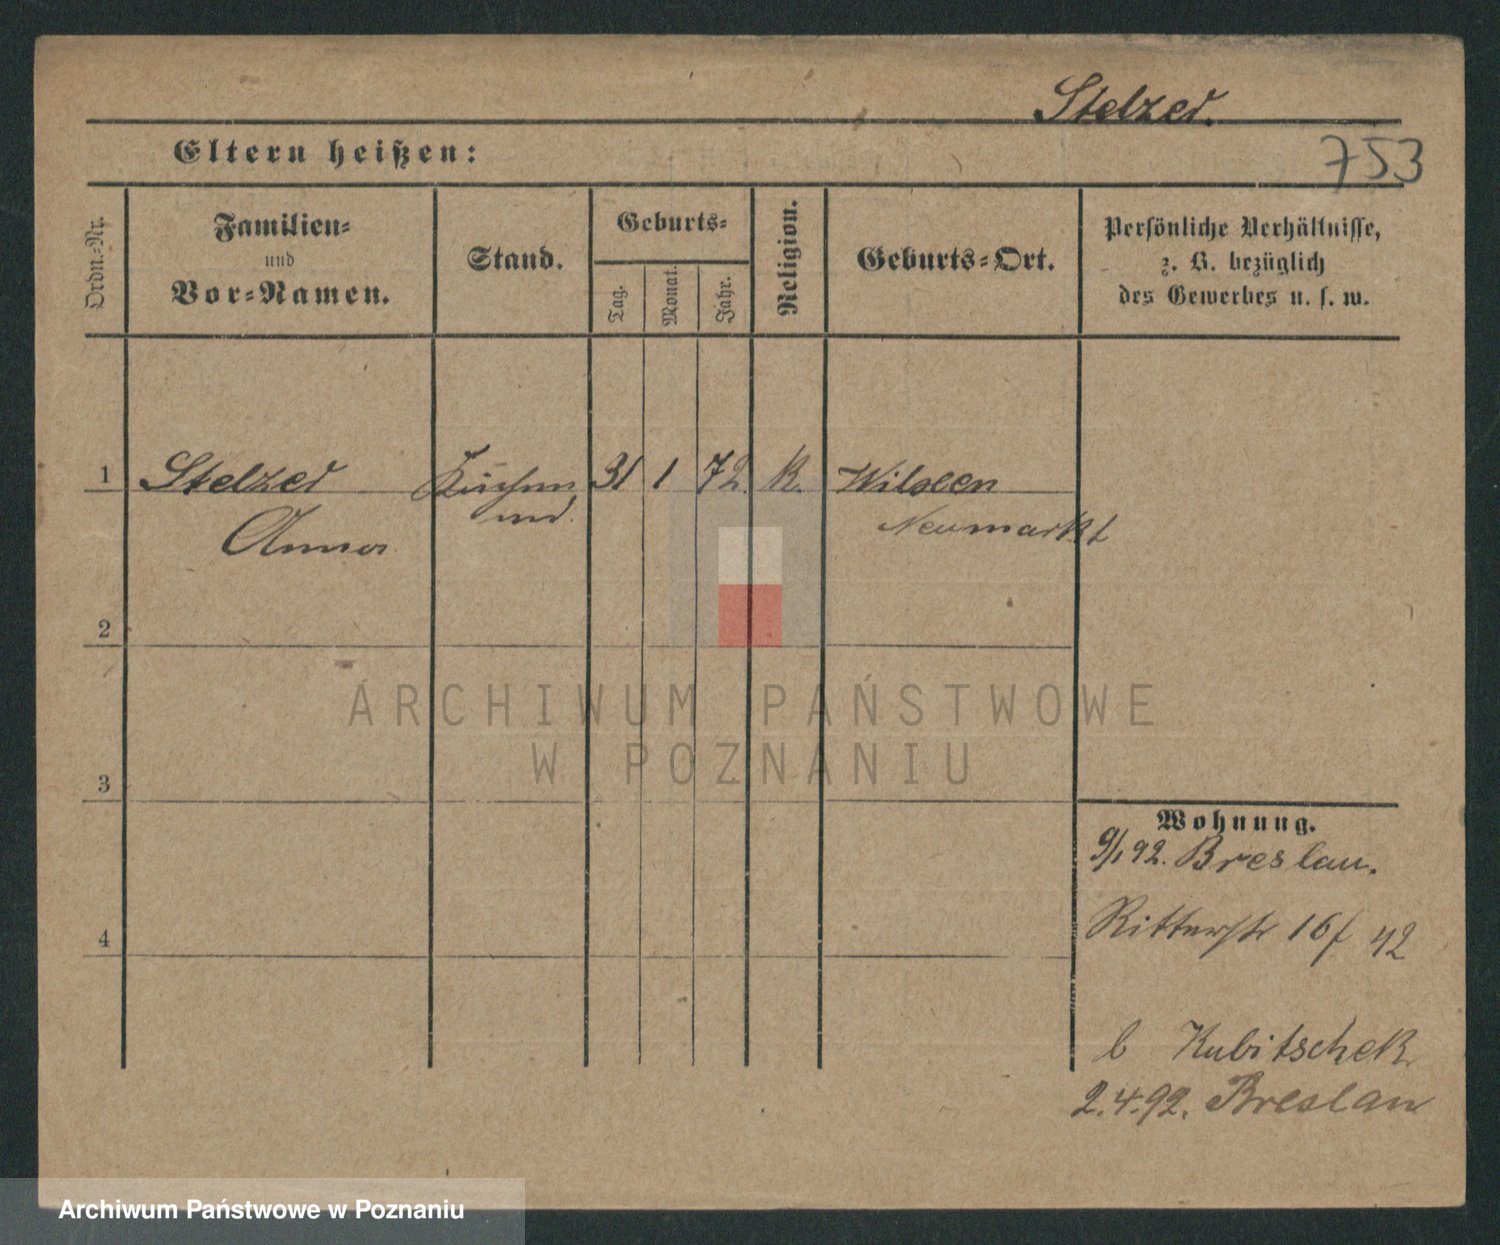 Stelzer.
753
Eltern heißen:
Ordn.-Nr.
Familien-
und
Vor-Namen.
Stand.
Geburts-
Tag.
Monat.
Jahr.
Religion.
Geburts-Ort.
Persönliche Verhältnisse,
z. B. bezüglich
des Gewerbes u. s. w.
1 Stelzer 31 1 72 K.
Anna Neumarkt
2
3
4
Wohnung.
9/1 92. Breslau.
Ritterstr 16
b Kubitschek
2.4.92. Breslau
ARCHIWUM PAŃSTWOWE
W POZNANIU
Archiwum Państwowe w Poznaniu